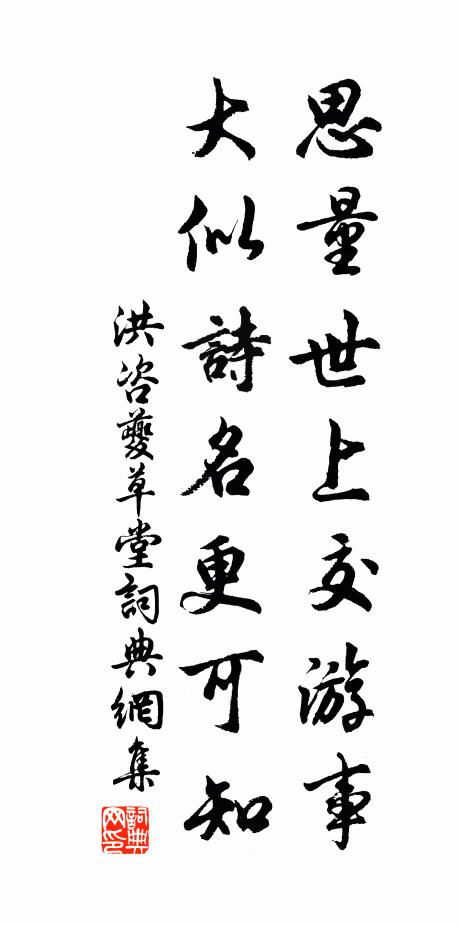 思量世上交游事
大似詩名更可知
洪咨夔草堂詞典網集
詞典
网印